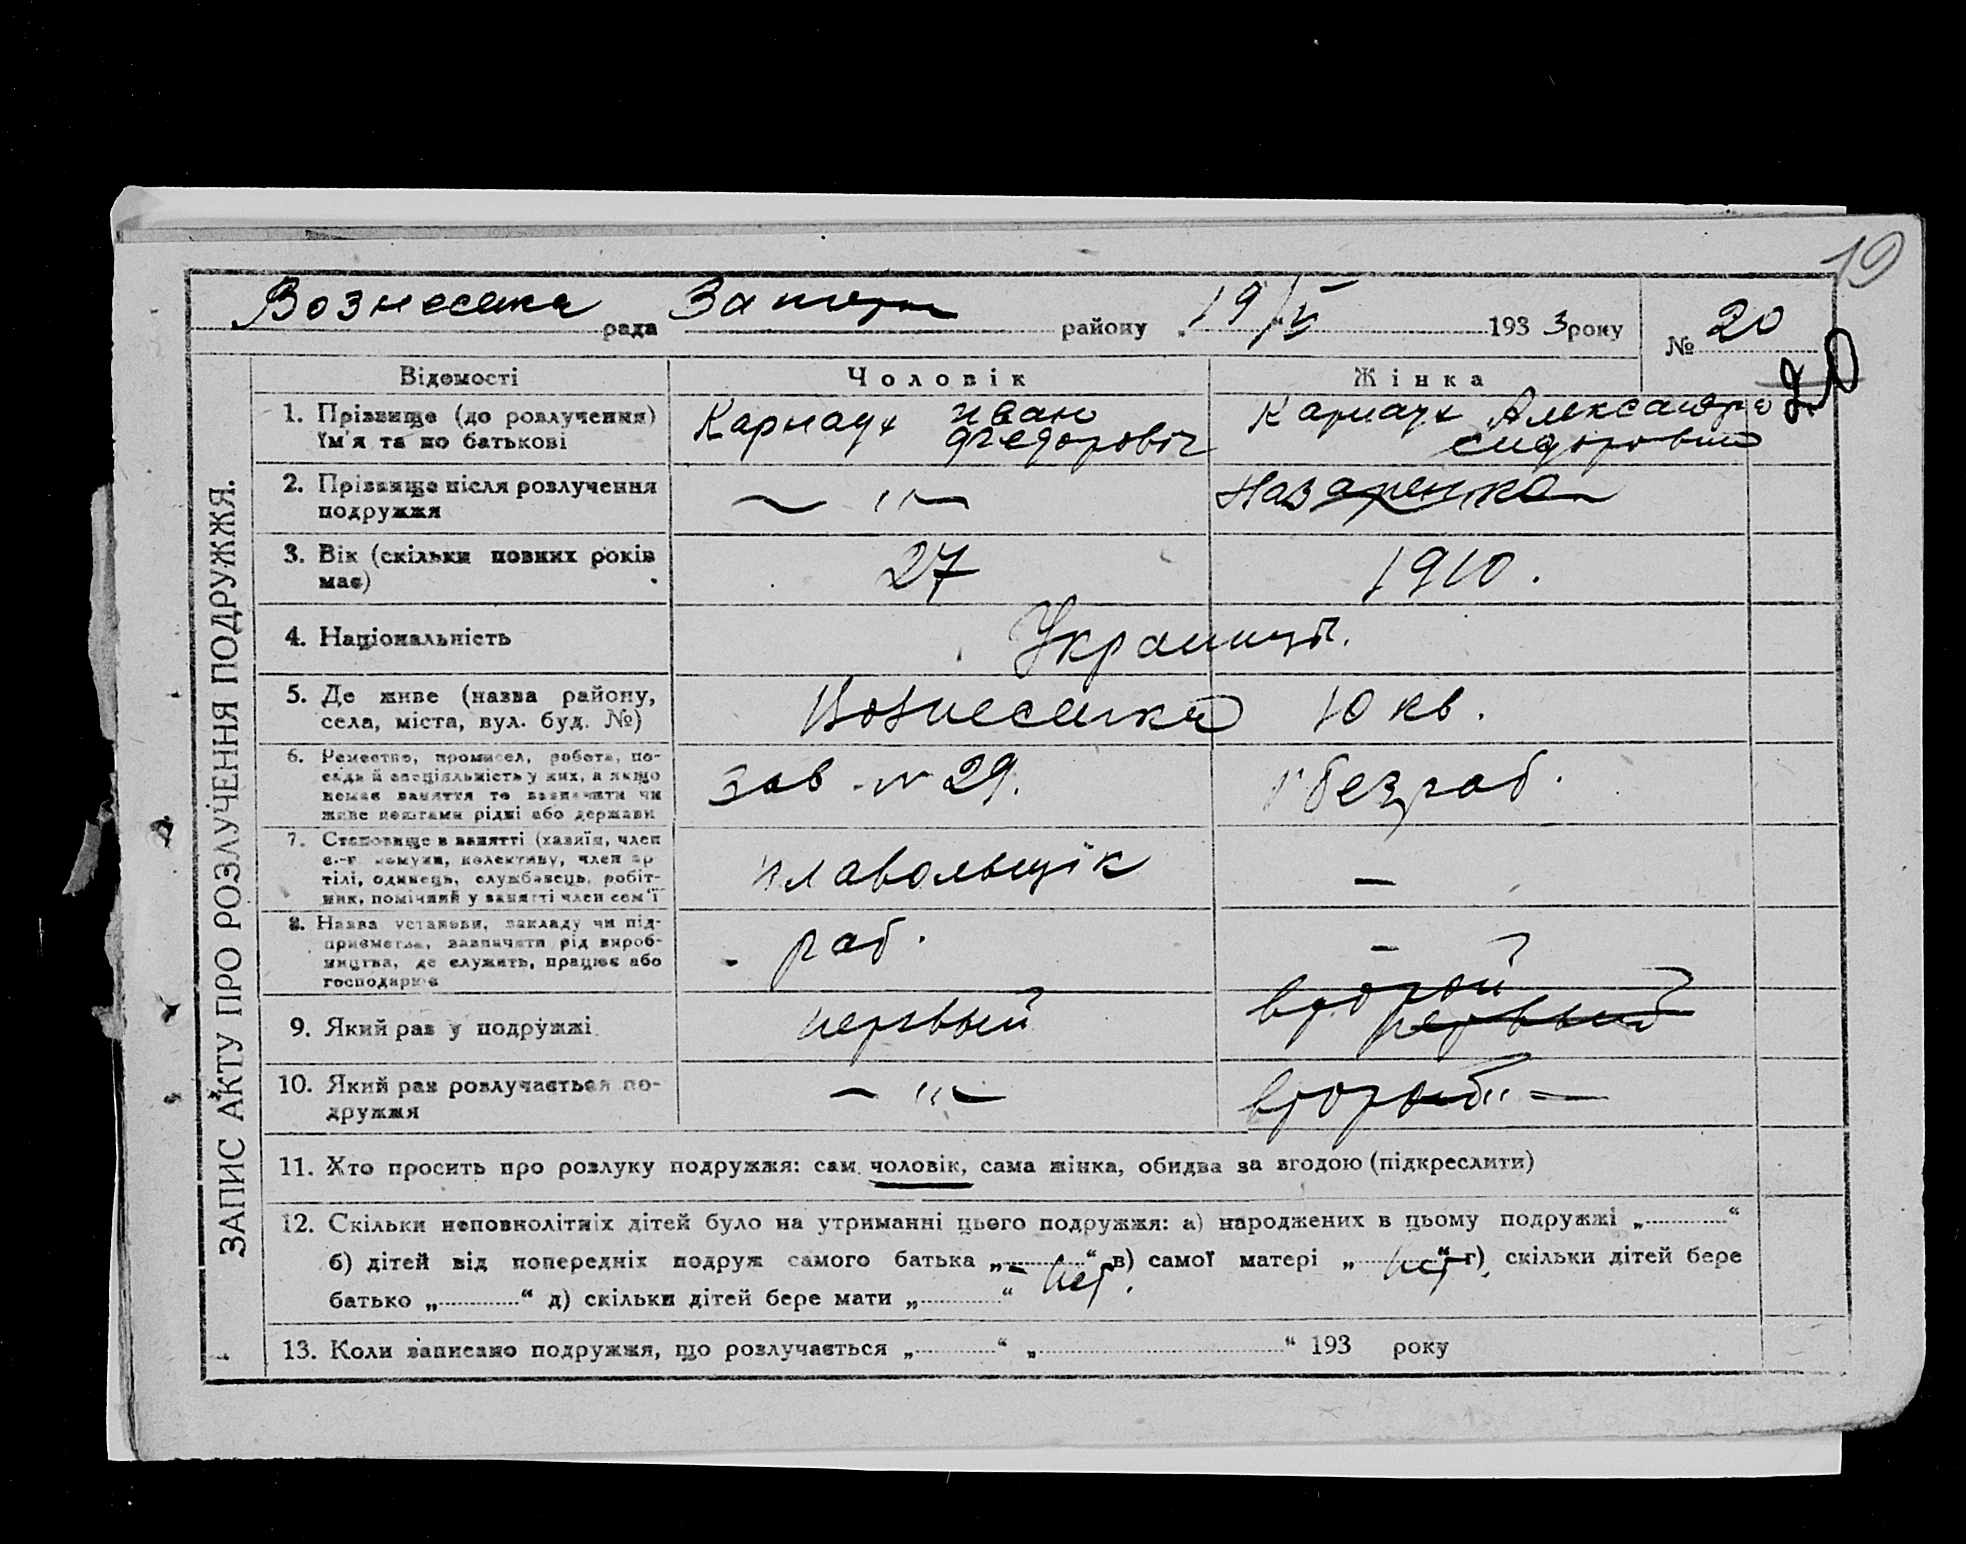 19
Вознесенка рада Запор району „19“/V 1933 року № 20
20
ЗАПИС АКТУ ПРО РОЗЛУЧЕННЯ ПОДРУЖЖЯ.
Відомості Чоловік Жінка
1. Прізвище (до розлучення) Карнаух Иван Карнаух Александра
їм'я та по батькові Федоровіч Сидоровна
2. Прізвище після розлучення — " — Назаренко
подружжя
3. Вік (скільки повних років 27 1910.
має)
4. Національність Украинці.
5. Де живе (назва району, Вознесенка 10 кв.
села, міста, вул. буд. №)
6. Ремество, промисел, робота, по-
сада й спеціяльність у них, а якщо зав. № 29. безраб.
немає заняття то зазначити чи
живе коштами рідні або держави
7. Становище в занятті (хазяїн, член
с.-г. комуни, колективу, член ар-
тілі, одинець, службовець, робіт- плавольщік —
ник, помічний у занятті член сем'ї
8. Назва установи, закладу чи під-
приємства, зазначити рід вироб- раб. —
ництва, де служить, працює або
господарює
9. Який раз у подружжі первый второй первый
10. Який раз розлучається по- — " — второй " —
дружжя
11. Хто просить про розлуку подружжя: сам чоловік, сама жінка, обидва за згодою (підкреслити)
12. Скільки неповнолітніх дітей було на утриманні цього подружжя: а) народжених в цьому подружжі „............“
б) дітей від попередніх подруж самого батька „............“ в) самої матері „ нет “ г) скільки дітей бере
батько „............“ д) скільки дітей бере мати „............“ - нет.
13. Коли записано подружжя, що розлучається „............“ „............“ 193 року